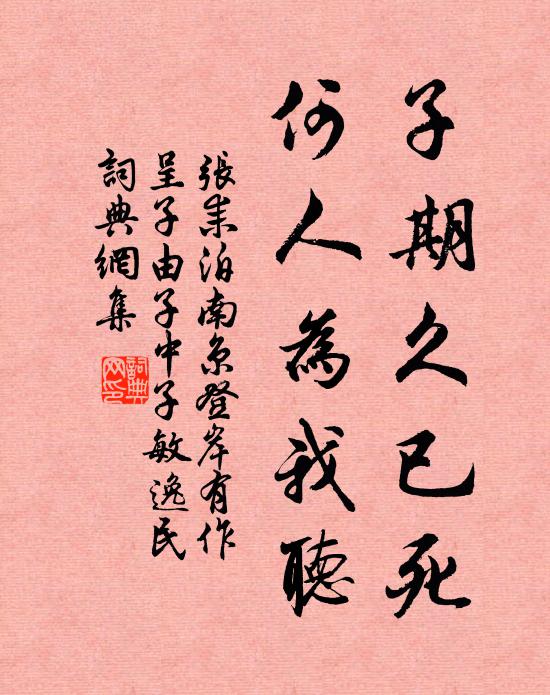 子期久已死
何人為我聽
張耒泊南京登岸有作
呈子由子中子敏逸民
詞典網集
詞典
网印